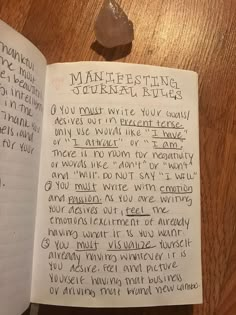 hankful
Y I am
e beautiful
n the
telligent
in the
Thank
als, and
for
MANIFESTING
JOURNAL RULES
① YOU MUST WRITE YOUR GOALS/
DESIRES OUT IN PRESENT TENSE.
ONLY USE WORDS LIKE "I HAVE"
OR "I ATTRACT" OR "I AM."
THERE IS NO ROOM FOR NEGATIVITY
OR WORDS LIKE "DON'T" OR "WON'T"
AND "WILL". DO NOT SAY "I WILL"
② YOU MUST WRITE WITH EMOTION
AND PASSION. AS YOU ARE WRITING
YOUR DESIRES OUT, FEEL THE
EMOTIONS/EXCITMENT OF ALREADY
HAVING WHAT IT IS YOU WANT.
③ YOU MUST VISUALIZE YOURSELF
ALREADY HAVING WHATEVER IT IS
YOU DESIRE. FEEL AND PICTURE
YOURSELF HAVING THAT BUSINESS
OR DRIVING THAT BRAND NEW LAMBO.